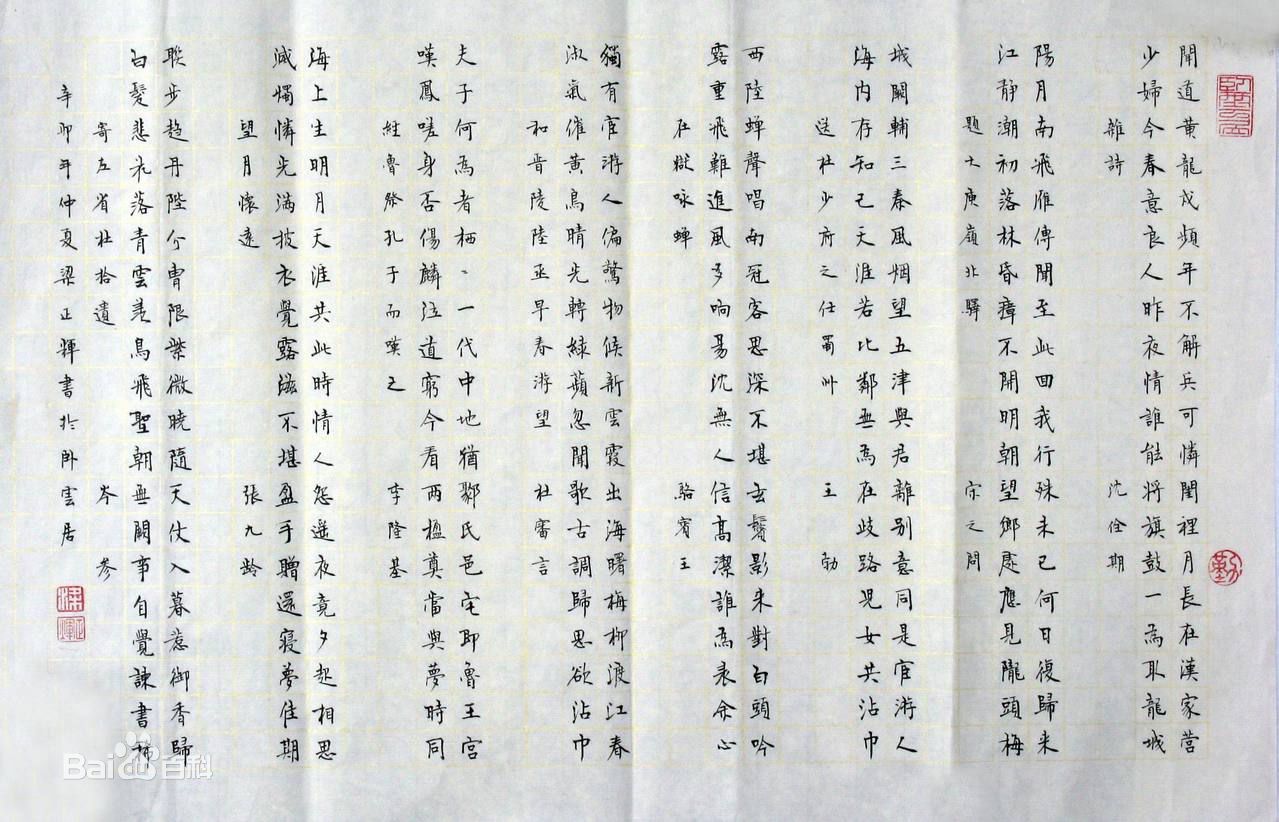 聞道黃龍戍頻年不解兵可憐閨裡月長在漢家營
少婦今春意良人昨夜情誰能將旗鼓一為取龍城
雜詩 沈佺期
陽月南飛雁傳聞至此回我行殊未已何日復歸来
江静潮初落林昏瘴不開明朝望鄉處應見隴頭梅
題大庾嶺北驛 宋之問
城闕輔三秦風烟望五津與君離别意同是宦游人
海内存知己天涯若比鄰無為在歧路兒女共沾巾
送杜少府之任蜀州 王勃
西陸蝉聲唱南冠客思深不堪玄鬢影来對白頭吟
露重飛難進風多响易沈無人信高潔誰為表余心
在獄咏蝉 駱賓王
獨有宦游人偏驚物候新雲霞出海曙梅柳渡江春
淑氣催黄鳥晴光轉緑蘋忽聞歌古調歸思欲沾巾
和晋陵陸丞早春游望 杜審言
夫子何為者栖〻一代中地猶鄹氏邑宅即魯王宫
嘆鳳嗟身否傷麟泣道窮今看兩楹奠當與夢時同
經魯祭孔子而嘆之 李隆基
海上生明月天涯共此時情人怨遥夜竟夕起相思
滅燭憐光满披衣覺露滋不堪盈手贈還寝夢佳期
望月懷遠 張九龄
聯步趋丹陛分曹限紫微曉隨天仗入暮惹御香歸
白髮悲花落青雲羡鳥飛聖朝無闕事自覺諫書稀
寄左省杜拾遺 岑參
辛卯年仲夏梁正輝書於卧雲居
Baidu百科